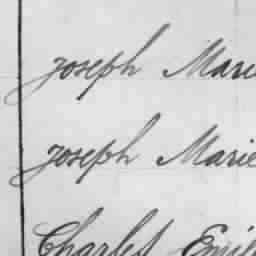 Joseph Marie
Joseph Marie
Charles Emil